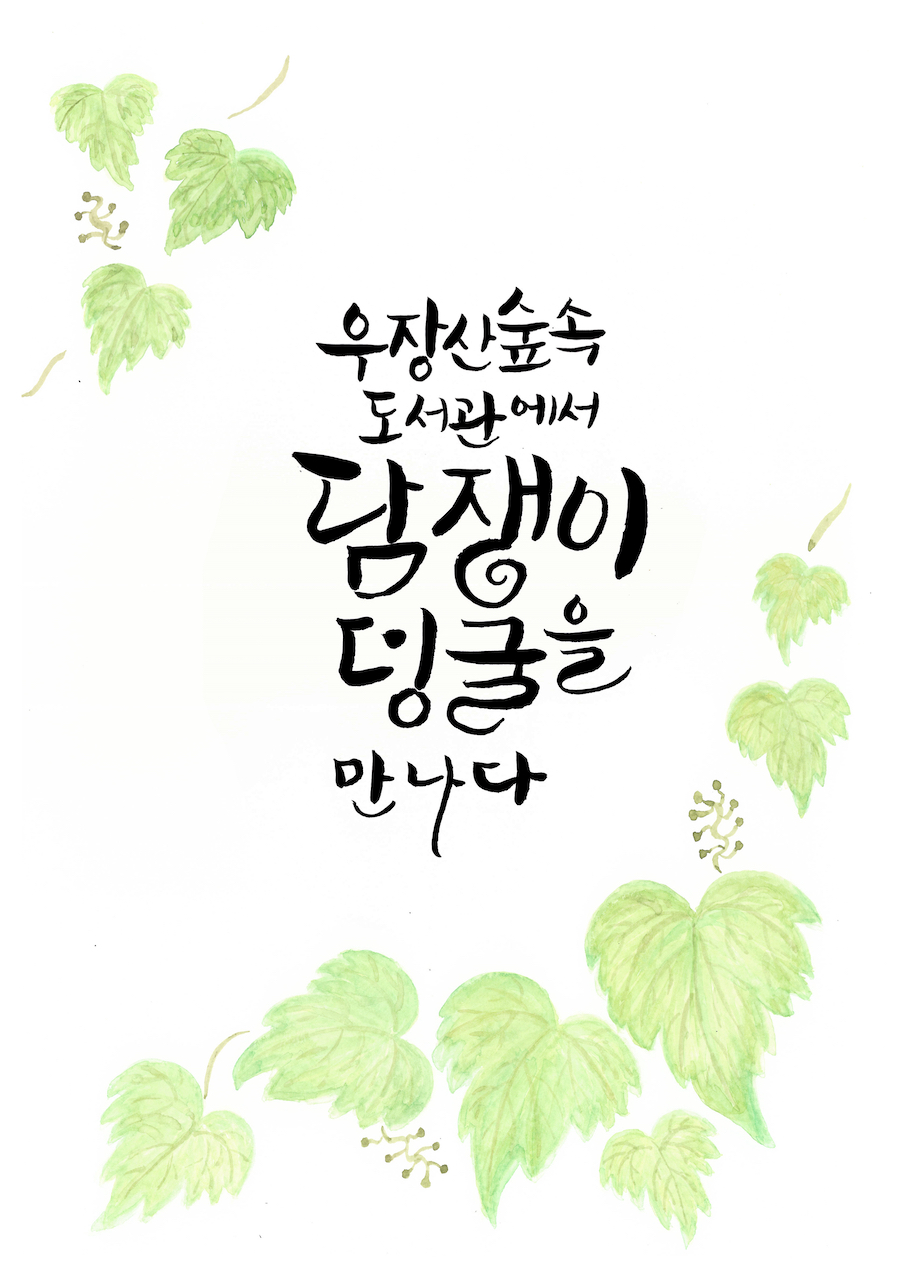 우장산숲속
도서관에서
담쟁이
덩굴을
만나다